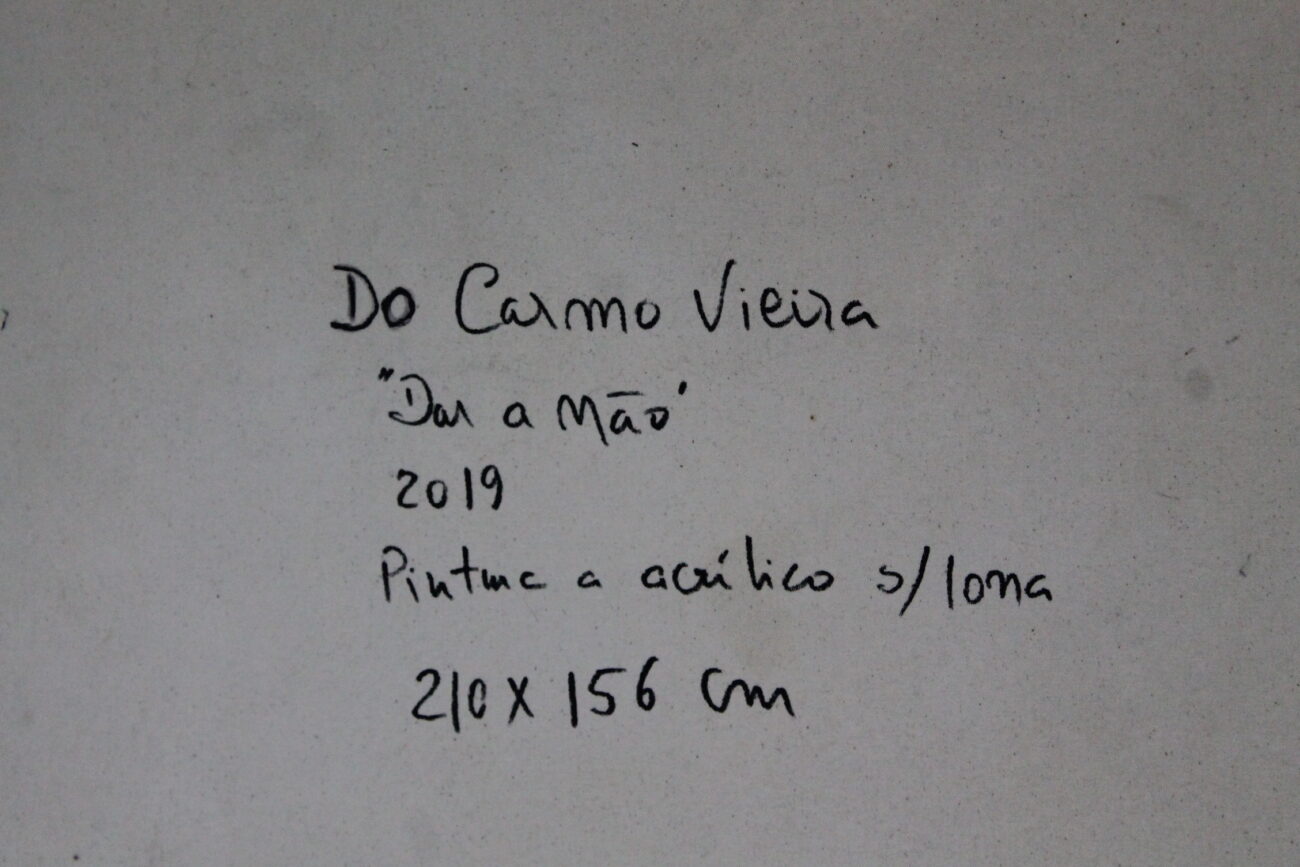 Do Carmo Vieira
"Dar a Mão"
2019
Pintura a acrílico s/lona
210 X 156 cm